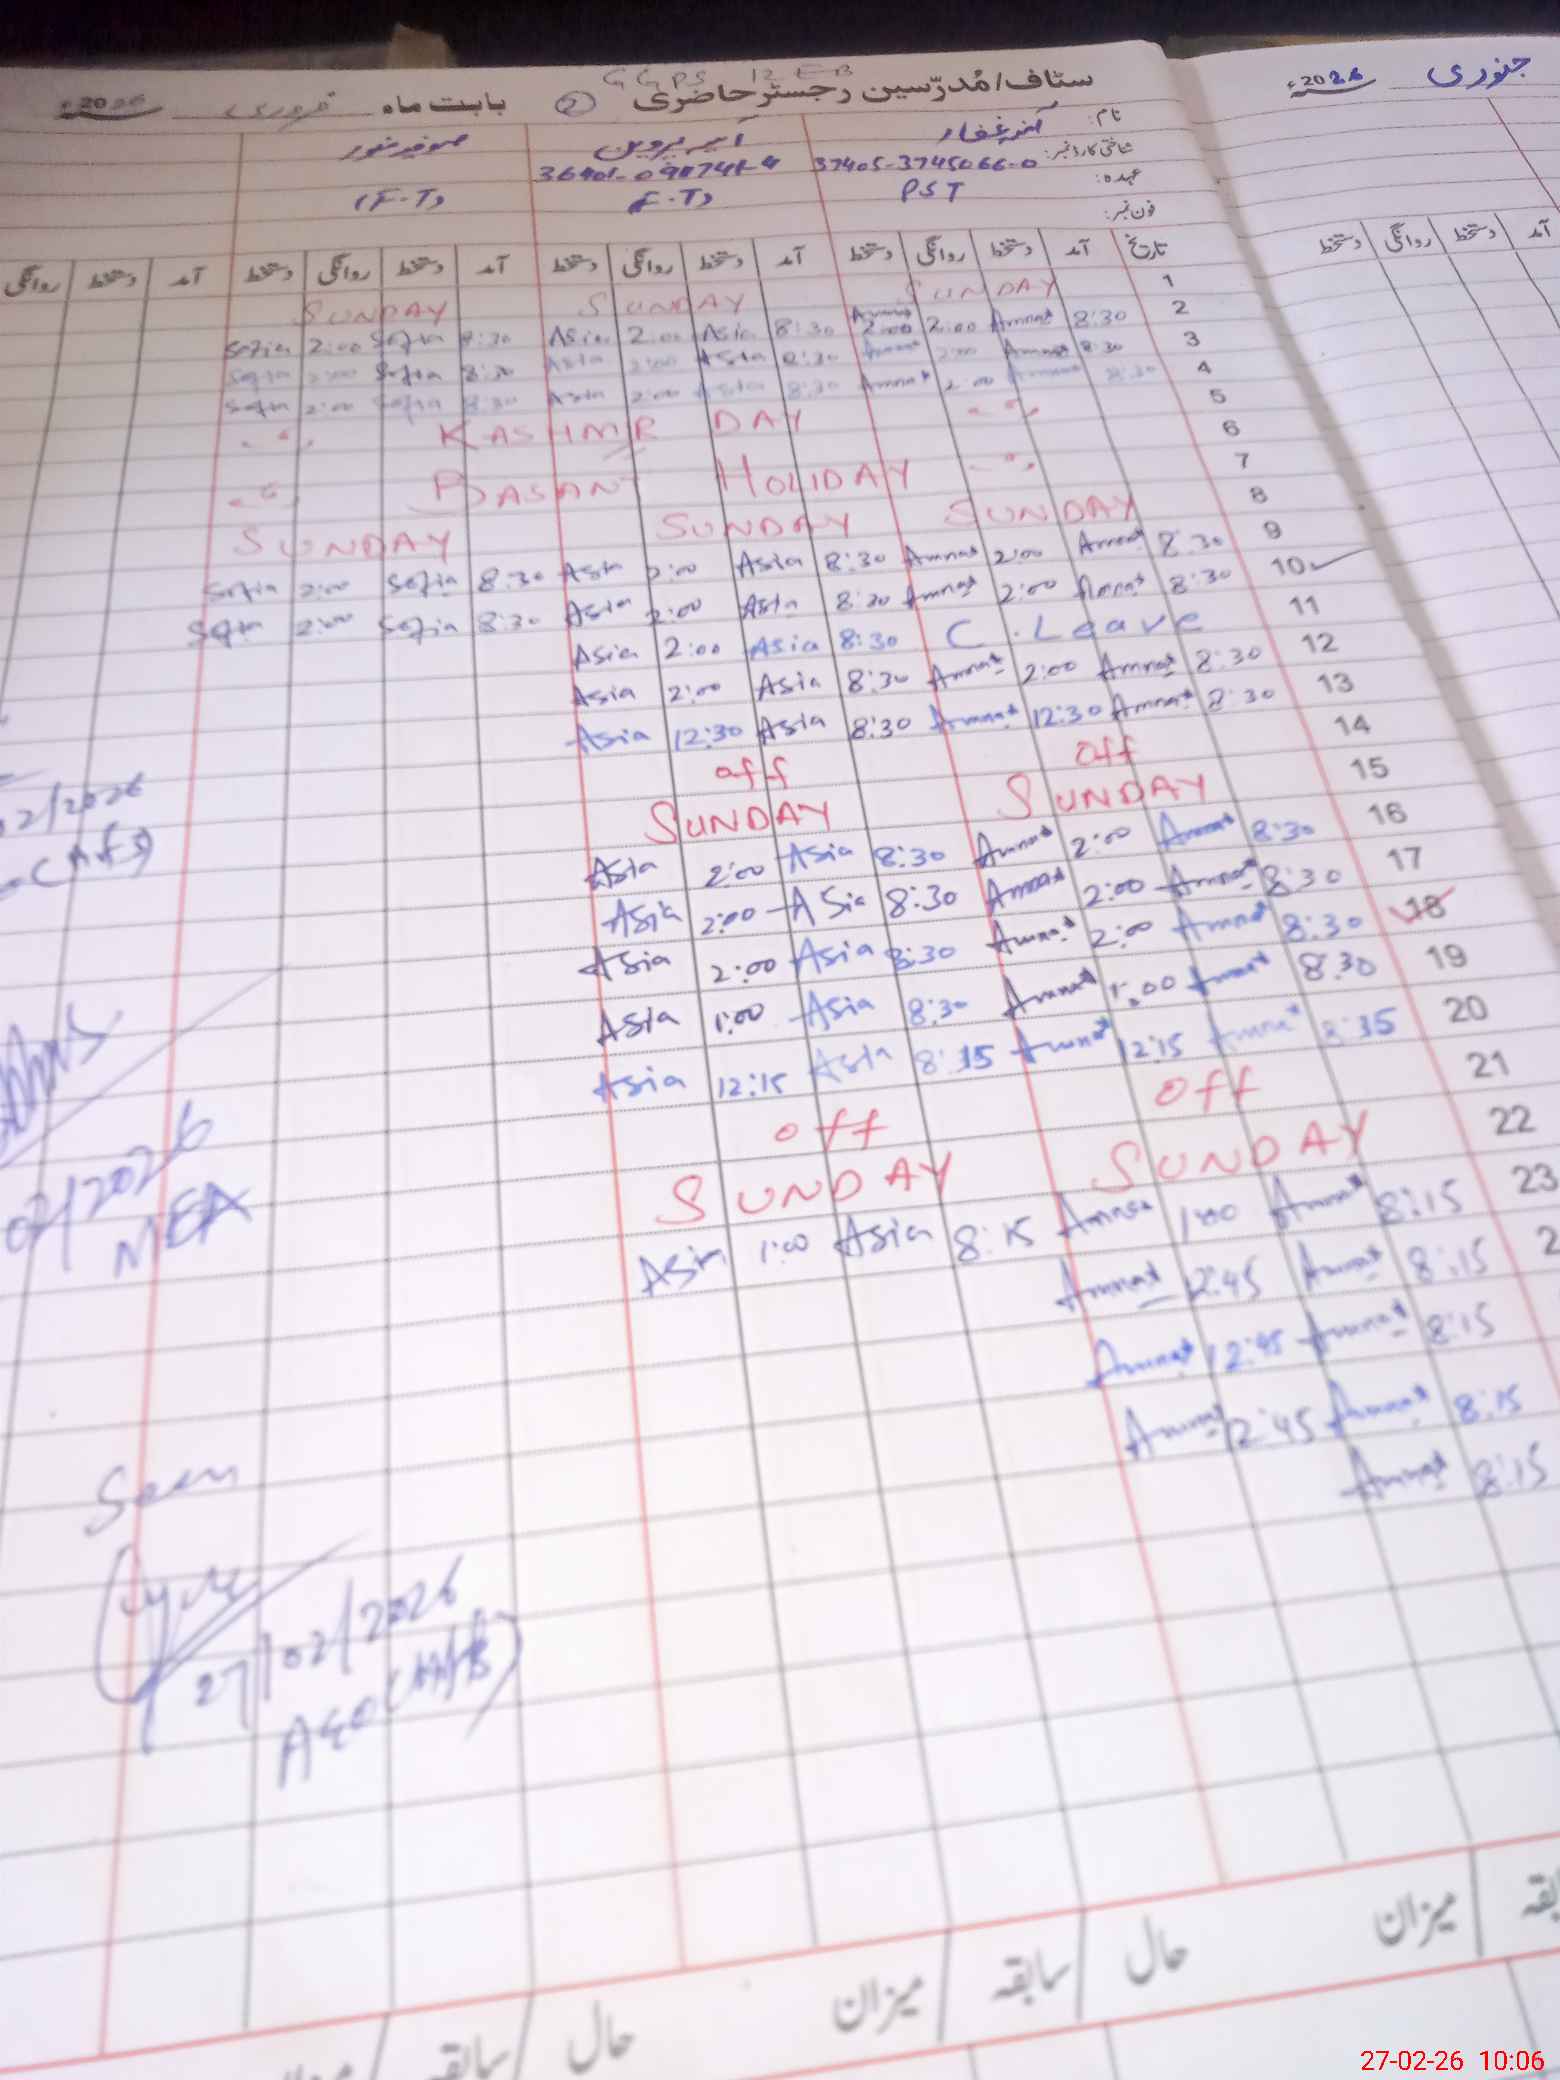 GGPS 12 EB
سٹاف/مُدرّسین رجسٹر حاضری (2) بابت ماہ فروری 2026ء
جنوری 2026ء
نام: صوفیہ
شناختی کارڈ نمبر: 37405-3745066-0
عہدہ: PST (F.T) (F.T)
فون نمبر:
تاریخ آمد دستخط روانگی دستخط آمد دستخط روانگی دستخط آمد دستخط روانگی دستخط آمد دستخط روانگی
آمد دستخط روانگی دستخط
SUNDAY SUNDAY SUNDAY 1
Sofia 2:00 Sofia 8:30 Asia 2:00 Asia 8:30 Amnat 2:00 2:00 Amnat 8:30 2
Sofia 2:00 Sofia 8:30 Asia 2:00 Asia 8:30 Amnat 2:00 Amnat 8:30 3
Sofia 2:00 Sofia 8:30 Asia 2:00 Asia 8:30 Amnat 2:00 Amnat 8:30 4
KASHMIR DAY 5
6
BASANT HOLIDAY 7
SUNDAY SUNDAY SUNDAY 8
Sofia 2:00 Sofia 8:30 Asia 2:00 Asia 8:30 Amnat 2:00 Amnat 8:30 9
Sofia 2:00 Sofia 8:30 Asia 2:00 Asia 8:30 Amnat 2:00 Amnat 8:30 10
Asia 2:00 Asia 8:30 C. Leave 11
Asia 2:00 Asia 8:30 Amnat 2:00 Amnat 8:30 12
Asia 12:30 Asia 8:30 Amnat 12:30 Amnat 8:30 13
off off 14
SUNDAY SUNDAY 15
Asia 2:00 Asia 8:30 Amnat 2:00 Amnat 8:30 16
Asia 2:00 Asia 8:30 Amnat 2:00 Amnat 8:30 17
Asia 2:00 Asia 8:30 Amnat 2:00 Amnat 8:30 18
Asia 1:00 Asia 8:30 Amnat 1:00 Amnat 8:30 19
Asia 12:15 Asia 8:15 Amnat 12:15 Amnat 8:15 20
off off 21
SUNDAY SUNDAY 22
Asia 1:00 Asia 8:15 Amnat 1:00 Amnat 8:15 23
Amnat 12:45 Amnat 8:15 2
Amnat 12:45 Amnat 8:15
Amnat 12:45 Amnat 8:15
Amnat 8:15
02/2026
02/2026
MEA
Seen
27/02/2026
AEO
میزان حال سابقہ میزان حال سابقہ
27-02-26 10:06